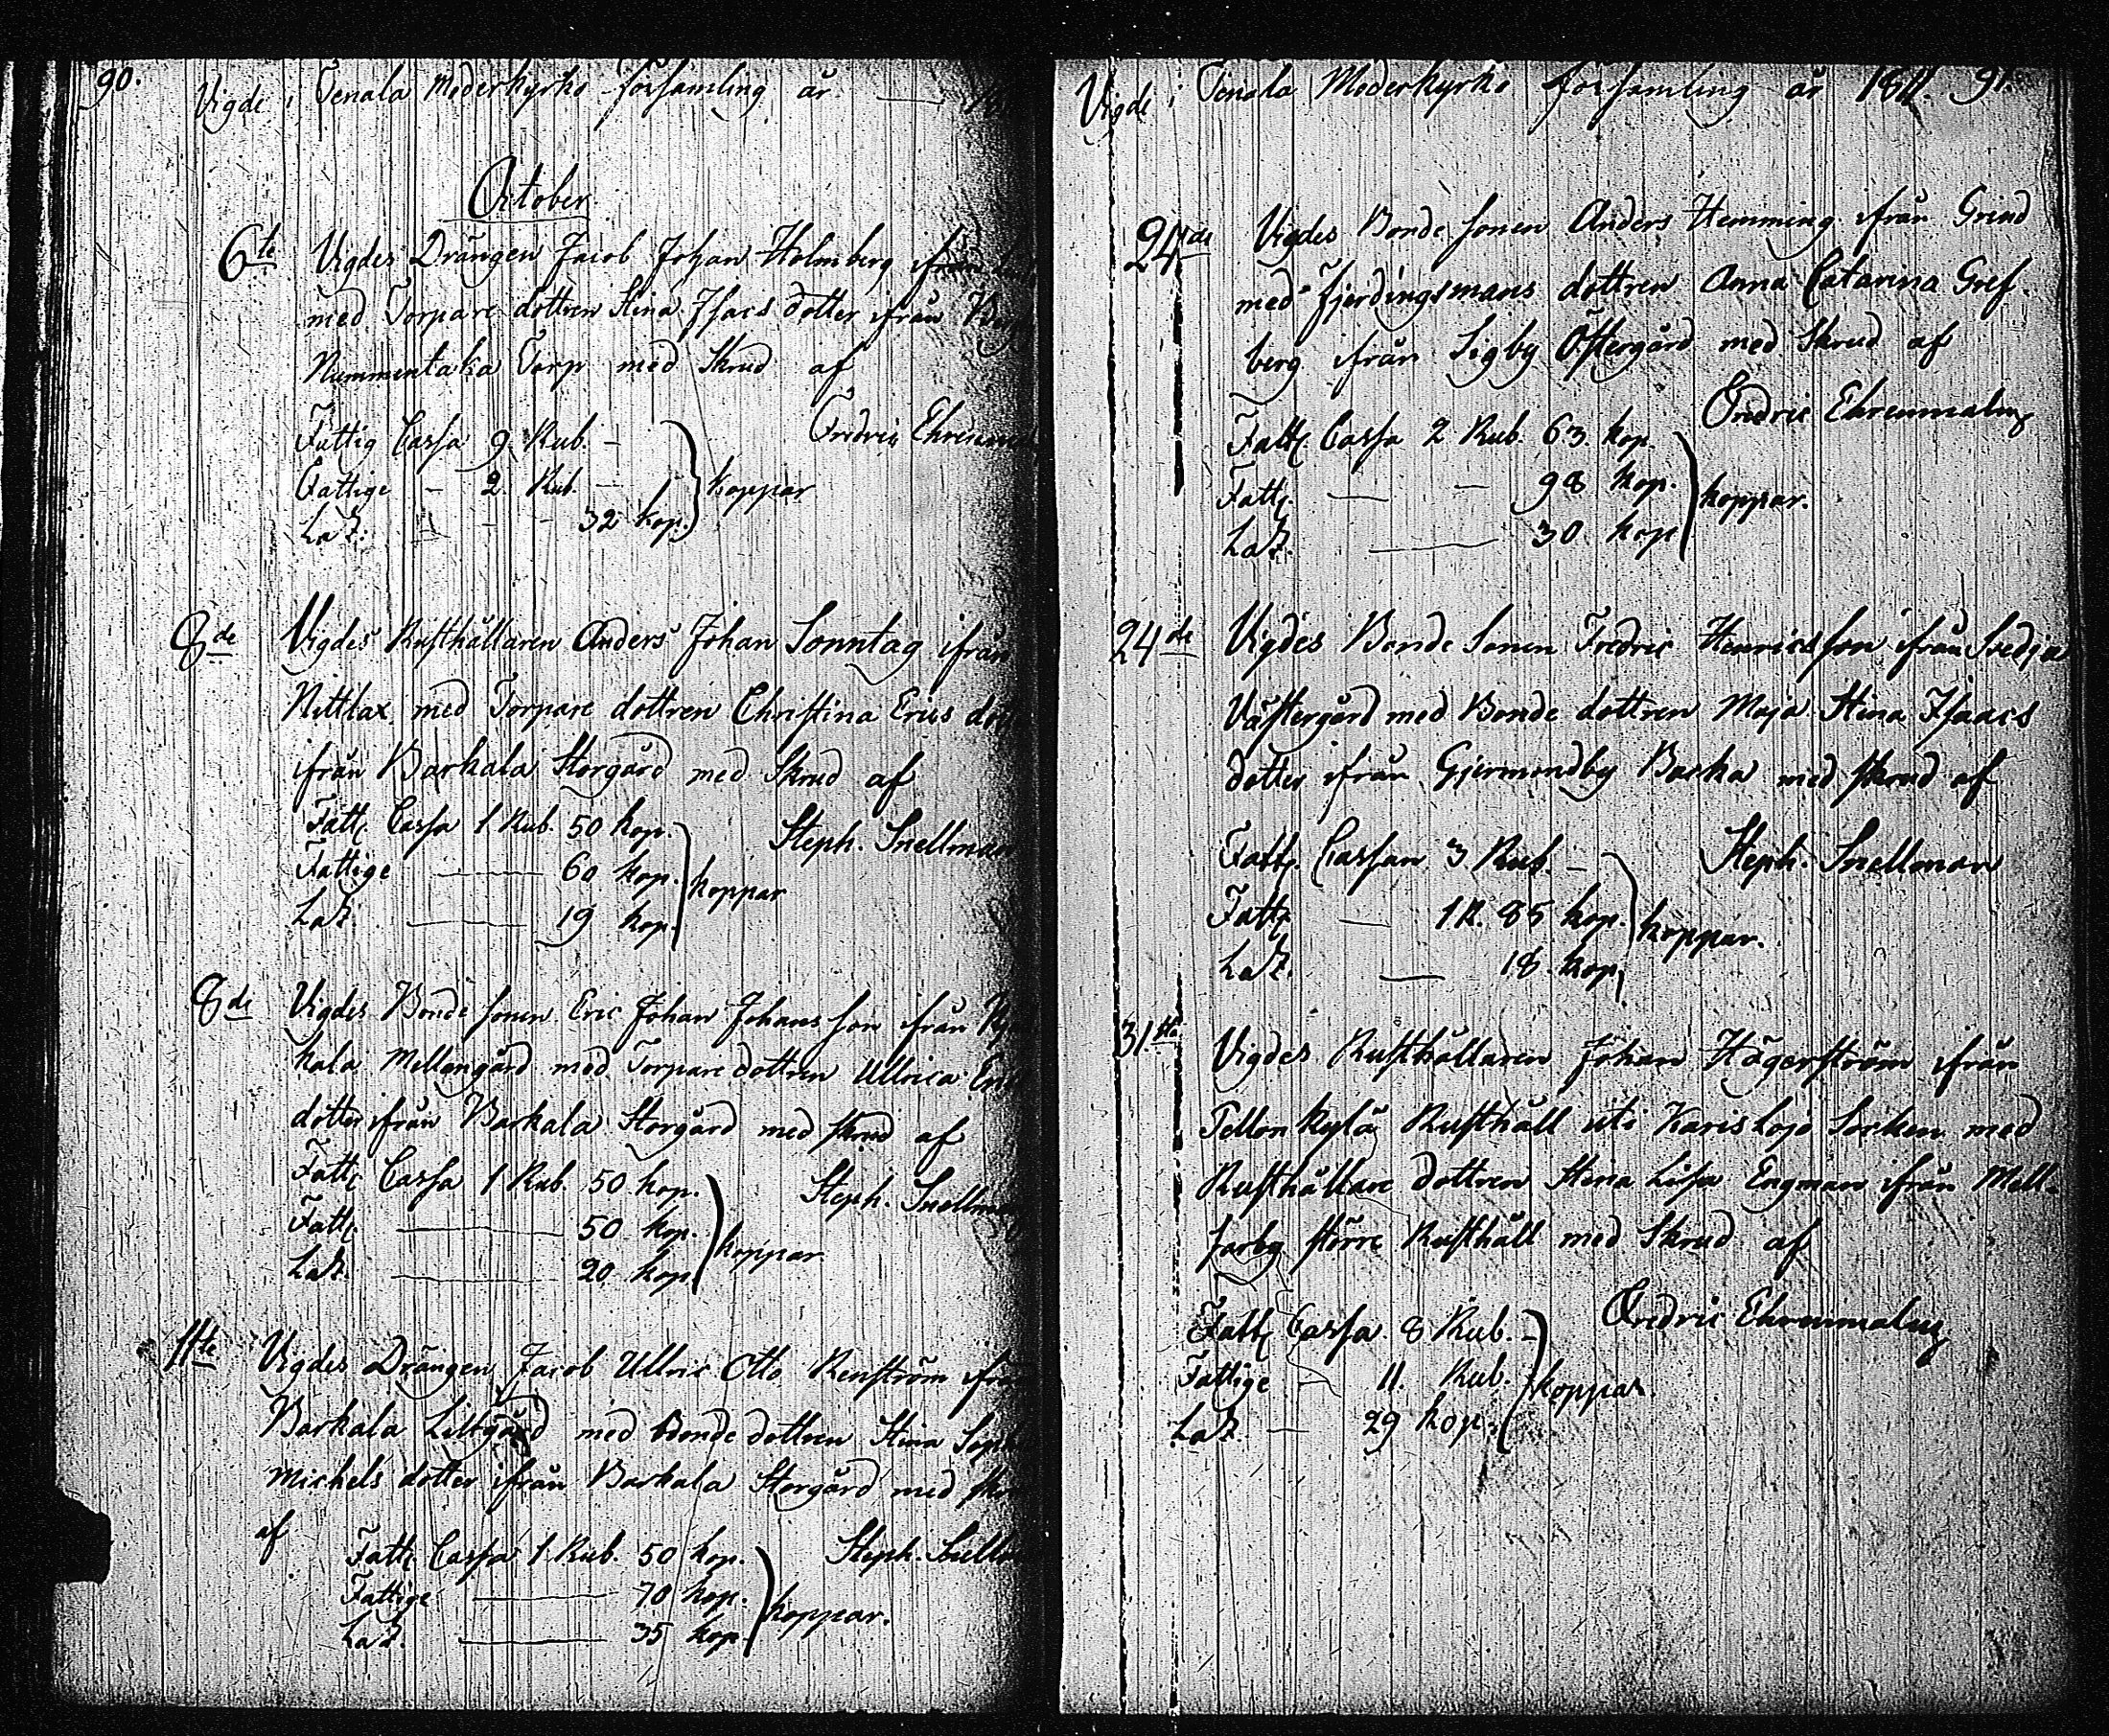 90.
Vigde i Tenala Moderkyrko församling år — 18
October
6te Vigdes Drängen Jacob Johan Holmberg ifrån
med Torpare dottren Stina Isacs dotter ifrån
Nummentaka Torp med Skrud af
Fredric Ehrenm
Fattig Cassa 9 Rub. —
Fattige — 2 Rub. — koppar
LaZ. — 32 kop.
8de Vigdes Rusthållaren Anders Johan Sonntag ifrån
Nittlax med Torpare dottren Christina Erics dott
ifrån Barkala Storgård med Skrud af
Fatt. Cassa 1 Rub. 50 kop. Steph. Snellman
Fattige — 60 kop. koppar
LaZ. — 19 kop.
8de Vigdes Bonde sonen Eric Johan Johans son ifrån
kala Mellangård med Torpare dottren Ullrica Erics
dotter ifrån Barkala Storgård med skrud af
Fatt. Cassa 1 Rub. 50 kop. Steph. Snellman
Fatt. — 50 kop. koppar
LaZ. — 20 kop.
11te Vigdes Drängen Jacob Ullric Otto Renström ifrån
Barkala Lillgård med Bonde dottren Stina Soph
Michels dotter ifrån Barkala Storgård med skr
af
Fatt. Cassa 1 Rub. 50 kop. Steph. Snellm
Fattige — 70 kop. koppar.
LaZ. — 35 kop.
Vigde i Tenala Moderkyrko församling år 1811. 91.
24de Vigdes Bonde sonen Anders Hemming ifrån Grind
med Fjerdingsmans dottren Anna Catarina Gref-
berg ifrån Sigby Östergård med Skrud af
Fredric Ehrenmalm
Fatt. Cassa 2 Rub. 63 kop.
Fatt. — — 98 kop. koppar.
LaZ. — 30 kop
24de Vigdes Bonde Sonen Fredric Henricsson ifrån Svedja
Västergård med Bonde dottren Maja Stina Isaacs
dotter ifrån Gjermundby Backa med skrud af
Fatt. Cassan 3 Rub. — Steph. Snellman
Fatt. — 1 R. 85 kop. koppar.
LaZ. — 18 kop.
31.ta Vigdes Rusthållaren Johan Högerström ifrån
Pellonkylä Rusthåll uti Karislojo Socken med
Rusthållare dottren Stina Lisa Engman ifrån Mell-
jarby större Rusthåll med Skrud af
Fatt. Cassa 8 Rub. — Fredric Ehrenmalm
Fattige — 11. Rub. koppar.
LaZ. — 29 kop.